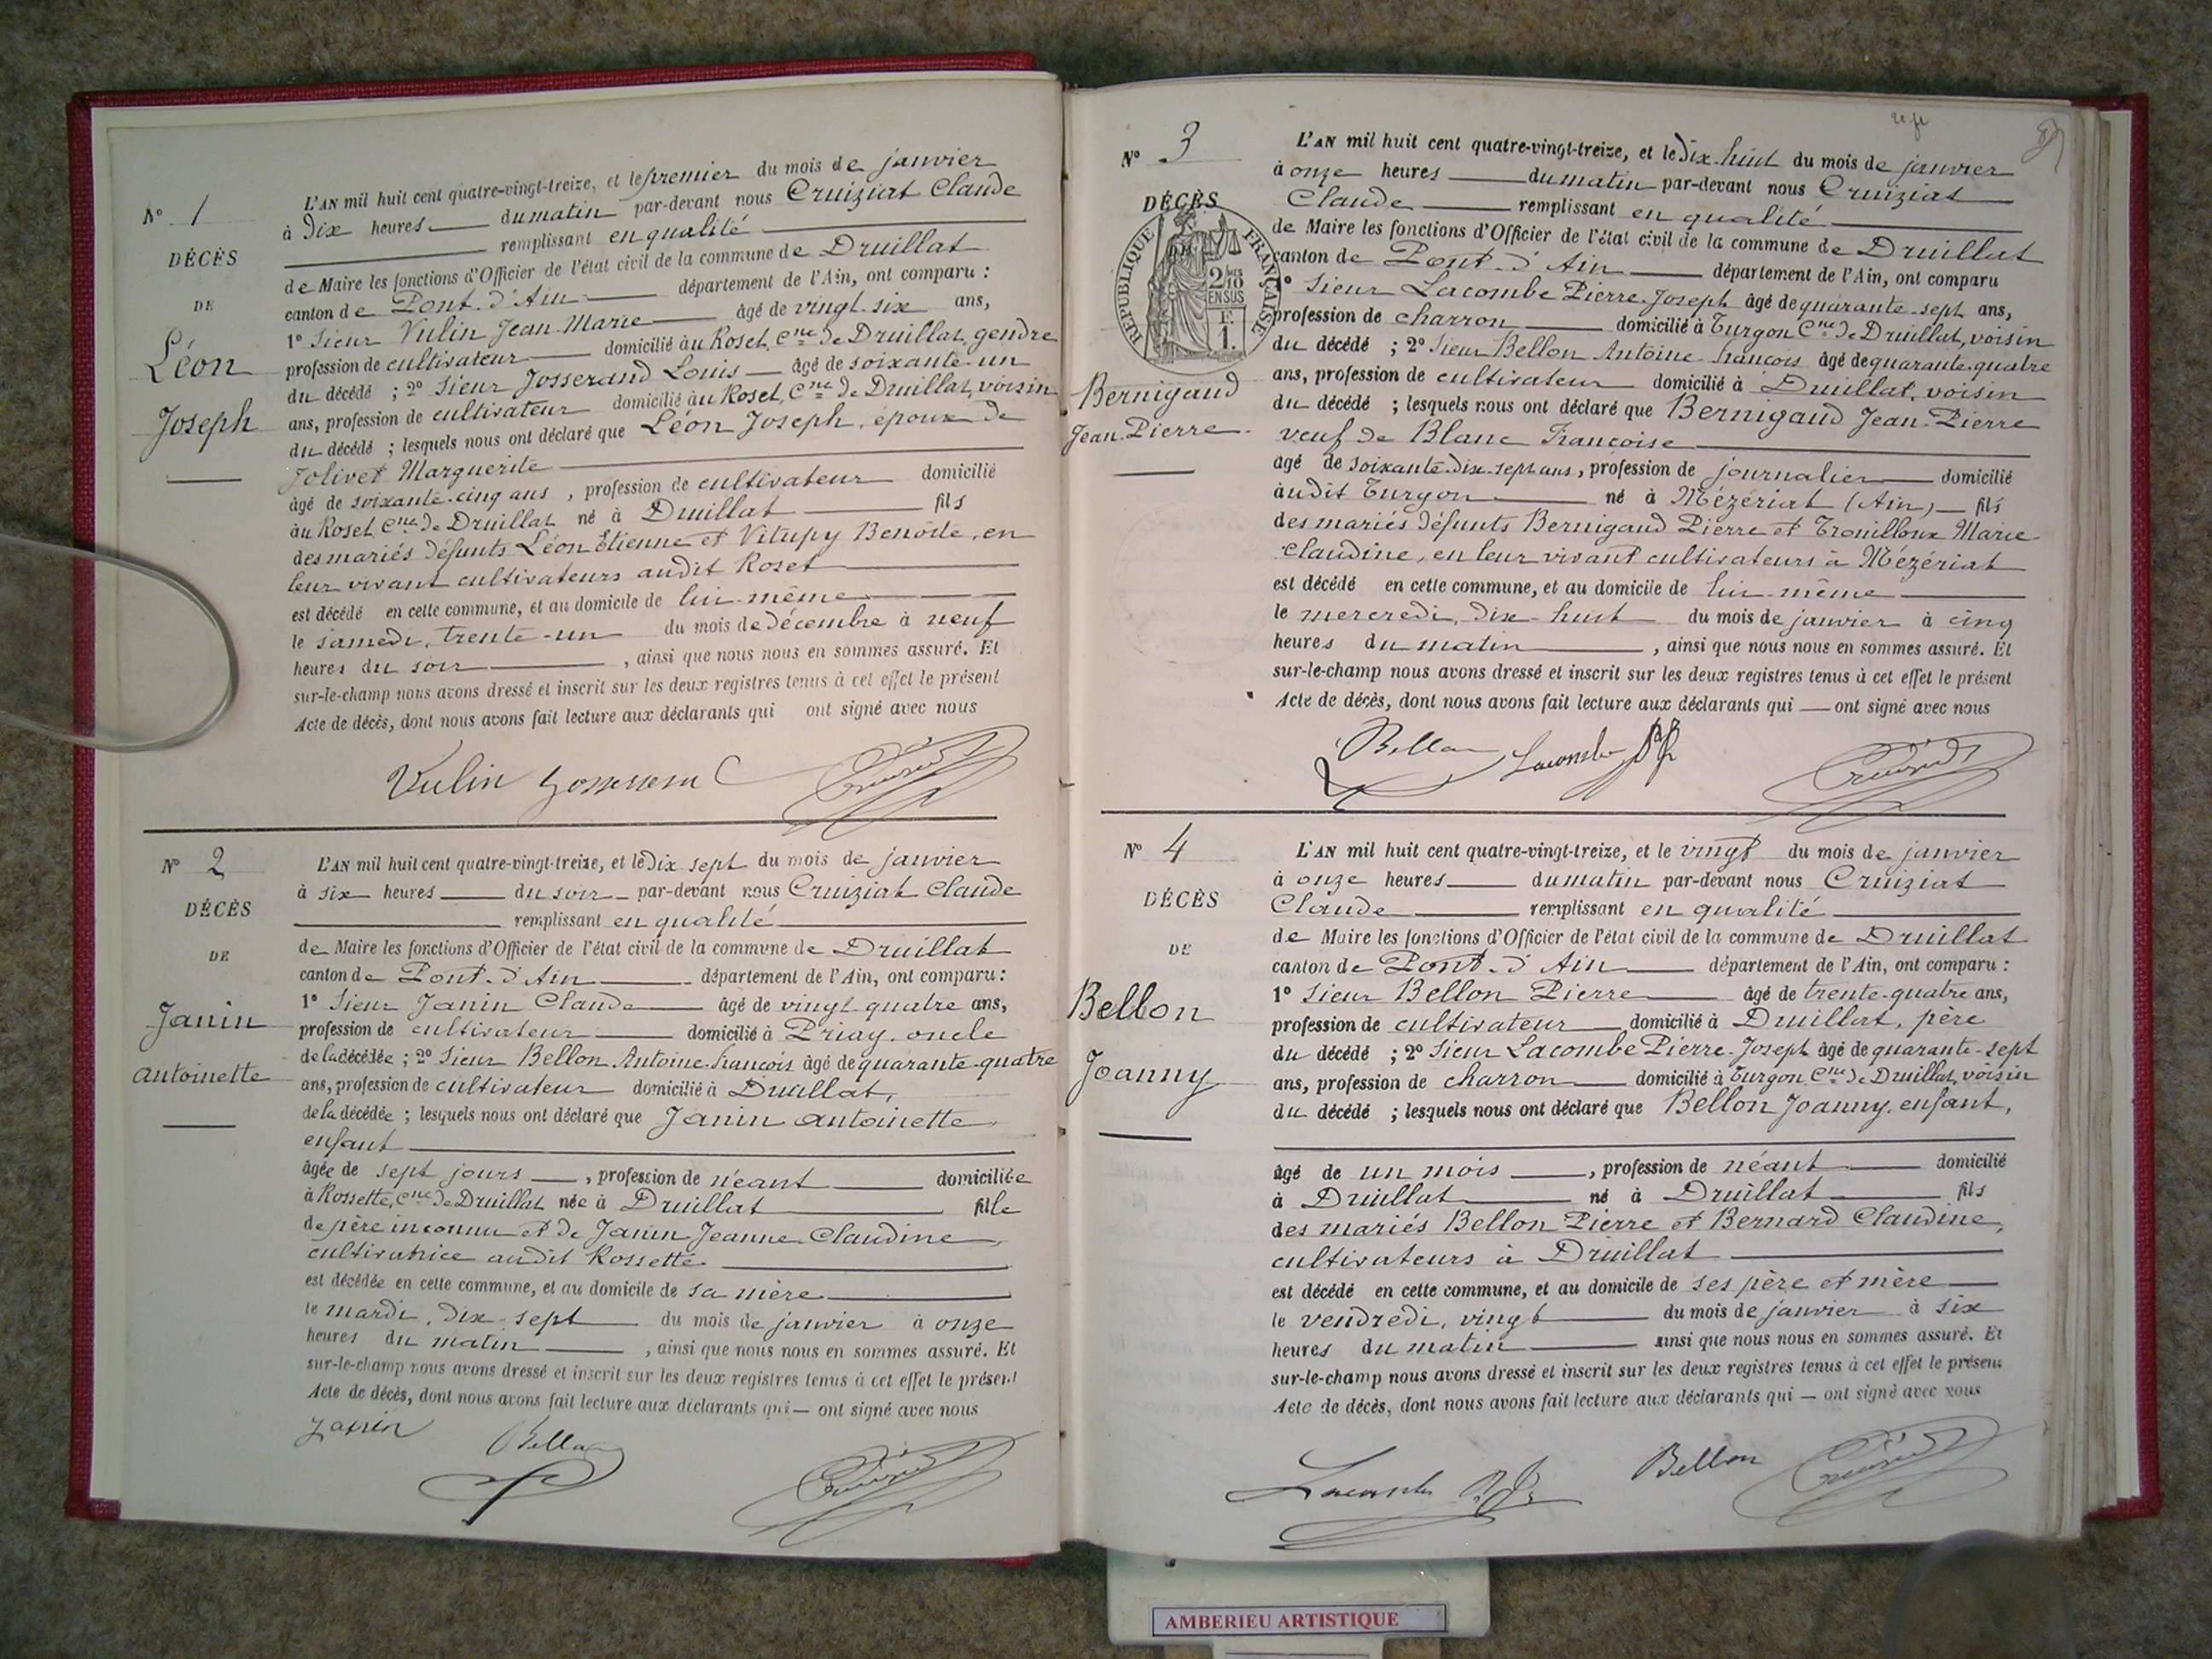 N° 1
DÉCÈS
DE
Léon
Joseph
L'AN mil huit cent quatre-vingt-treize, et le premier du mois de janvier
à Dix heures du matin par-devant nous Cruiziat Claude
remplissant en qualité
de Maire les fonctions d'Officier de l'état civil de la commune de Druillat
canton de Pont-d'Ain département de l'Ain, ont comparu :
1° Sieur Vulin Jean-Marie âgé de vingt-six ans,
profession de cultivateur domicilié au Roset, Cne de Druillat, gendre
du décédé ; 2° Sieur Josserand Louis âgé de soixante-un
ans, profession de cultivateur domicilié au Roset, Cne de Druillat, voisin
du décédé ; lesquels nous ont déclaré que Léon Joseph, époux de
Jolivet Marguerite
âgé de soixante-cinq ans, profession de cultivateur domicilié
au Roset Cne de Druillat né à Druillat fils
des mariés défunts Léon Étienne et Vitupy Benoîte, en
leur vivant cultivateurs audit Roset
est décédé en cette commune, et au domicile de lui-même
le samedi, trente-un du mois de décembre à neuf
heures du soir , ainsi que nous nous en sommes assuré. Et
sur-le-champ nous avons dressé et inscrit sur les deux registres tenus à cet effet le présent
Acte de décès, dont nous avons fait lecture aux déclarants qui ont signé avec nous
Vulin
N° 2
DÉCÈS
DE
Janin
Antoinette
L'AN mil huit cent quatre-vingt-treize, et le Dix sept du mois de janvier
à six heures du soir par-devant nous Cruiziat Claude
remplissant en qualité
de Maire les fonctions d'Officier de l'état civil de la commune de Druillat
canton de Pont-d'Ain département de l'Ain, ont comparu :
1° Sieur Janin Claude âgé de vingt quatre ans,
profession de cultivateur domicilié à Priay, oncle
de la décédée ; 2° Sieur Bellon Antoine-François âgé de quarante-quatre
ans, profession de cultivateur domicilié à Druillat,
de la décédée ; lesquels nous ont déclaré que Janin Antoinette
enfant
âgée de sept jours , profession de néant domiciliée
à Rossette, Cne de Druillat née à Druillat fille
de père inconnu et de Janin Jeanne-Claudine,
cultivatrice audit Rossette
est décédée en cette commune, et au domicile de sa mère
le mardi, dix-sept du mois de janvier à onze
heures du matin , ainsi que nous nous en sommes assuré. Et
sur-le-champ nous avons dressé et inscrit sur les deux registres tenus à cet effet le présent
Acte de décès, dont nous avons fait lecture aux déclarants qui ont signé avec nous
Janin Bellon
N° 3
DÉCÈS
RÉPUBLIQUE FRANÇAISE
2/10
EN SUS
F.
1.
Bernigaud
Jean-Pierre
L'AN mil huit cent quatre-vingt-treize, et le Dix-huit du mois de janvier
à onze heures du matin par-devant nous Cruiziat
Claude remplissant en qualité
de Maire les fonctions d'Officier de l'état civil de la commune de Druillat
canton de Pont-d'Ain département de l'Ain, ont comparu
1° Sieur Lacombe Pierre-Joseph âgé de quarante-sept ans,
profession de charron domicilié à Turgon Cne de Druillat, voisin
du décédé ; 2° Sieur Bellon Antoine-François âgé de quarante-quatre
ans, profession de cultivateur domicilié à Druillat, voisin
du décédé ; lesquels nous ont déclaré que Bernigaud Jean-Pierre
veuf de Blanc Françoise
âgé de soixante-dix-sept ans, profession de journalier domicilié
audit Turgon né à Mézériat (Ain) fils
des mariés défunts Bernigaud Pierre et Trouilloux Marie-
Claudine, en leur vivant cultivateurs à Mézériat
est décédé en cette commune, et au domicile de lui-même
le mercredi, dix-huit du mois de janvier à cinq
heures du matin , ainsi que nous nous en sommes assuré. Et
sur-le-champ nous avons dressé et inscrit sur les deux registres tenus à cet effet le présent
Acte de décès, dont nous avons fait lecture aux déclarants qui ont signé avec nous
Bellon Lacombe
N° 4
DÉCÈS
DE
Bellon
Joanny
L'AN mil huit cent quatre-vingt-treize, et le vingt du mois de janvier
à onze heures du matin par-devant nous Cruiziat
Claude remplissant en qualité
de Maire les fonctions d'Officier de l'état civil de la commune de Druillat
canton de Pont-d'Ain département de l'Ain, ont comparu :
1° Sieur Bellon Pierre âgé de trente-quatre ans,
profession de cultivateur domicilié à Druillat, père
du décédé ; 2° Sieur Lacombe Pierre-Joseph âgé de quarante-sept
ans, profession de charron domicilié à Turgon Cne de Druillat, voisin
du décédé ; lesquels nous ont déclaré que Bellon Joanny, enfant,
âgé de un mois , profession de néant domicilié
à Druillat né à Druillat fils
des mariés Bellon Pierre et Bernard Claudine,
cultivateurs à Druillat
est décédé en cette commune, et au domicile de ses père et mère
le vendredi, vingt du mois de janvier à six
heures du matin ainsi que nous nous en sommes assuré. Et
sur-le-champ nous avons dressé et inscrit sur les deux registres tenus à cet effet le présent
Acte de décès, dont nous avons fait lecture aux déclarants qui — ont signé avec nous
Lacombe Bellon
AMBERIEU ARTISTIQUE